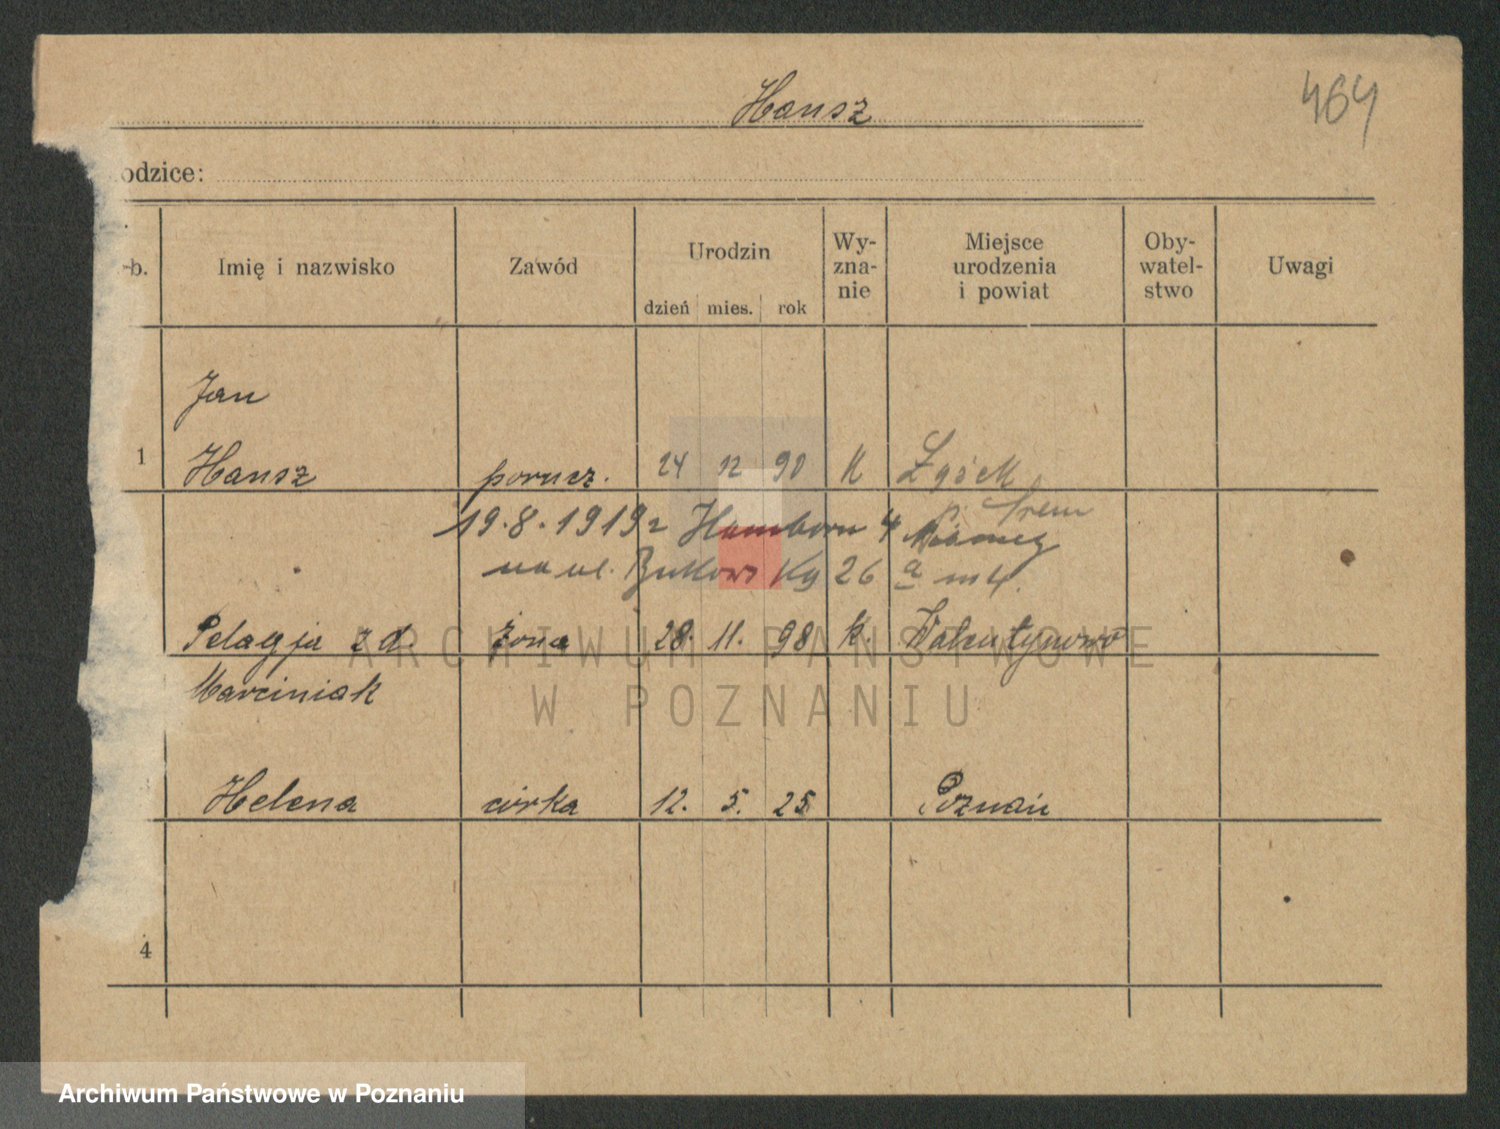 Hansz
464
odzice:
b.
Imię i nazwisko
Zawód
Urodzin
dzień mies. rok
Wy-
zna-
nie
Miejsce
urodzenia
i powiat
Oby-
watel-
stwo
Uwagi
Jan
1 Hansz porucz. 24 12 90 K
p. Śrem
19.8.1919 r Hamborn 4 Niemcy
na ul. 26 a m 4.
Pelagja z d. żona 28. 11. 98 k.
Marciniak
Helena córka 12. 5. 25 Poznań
4
ARCHIWUM PAŃSTWOWE
W POZNANIU
Archiwum Państwowe w Poznaniu